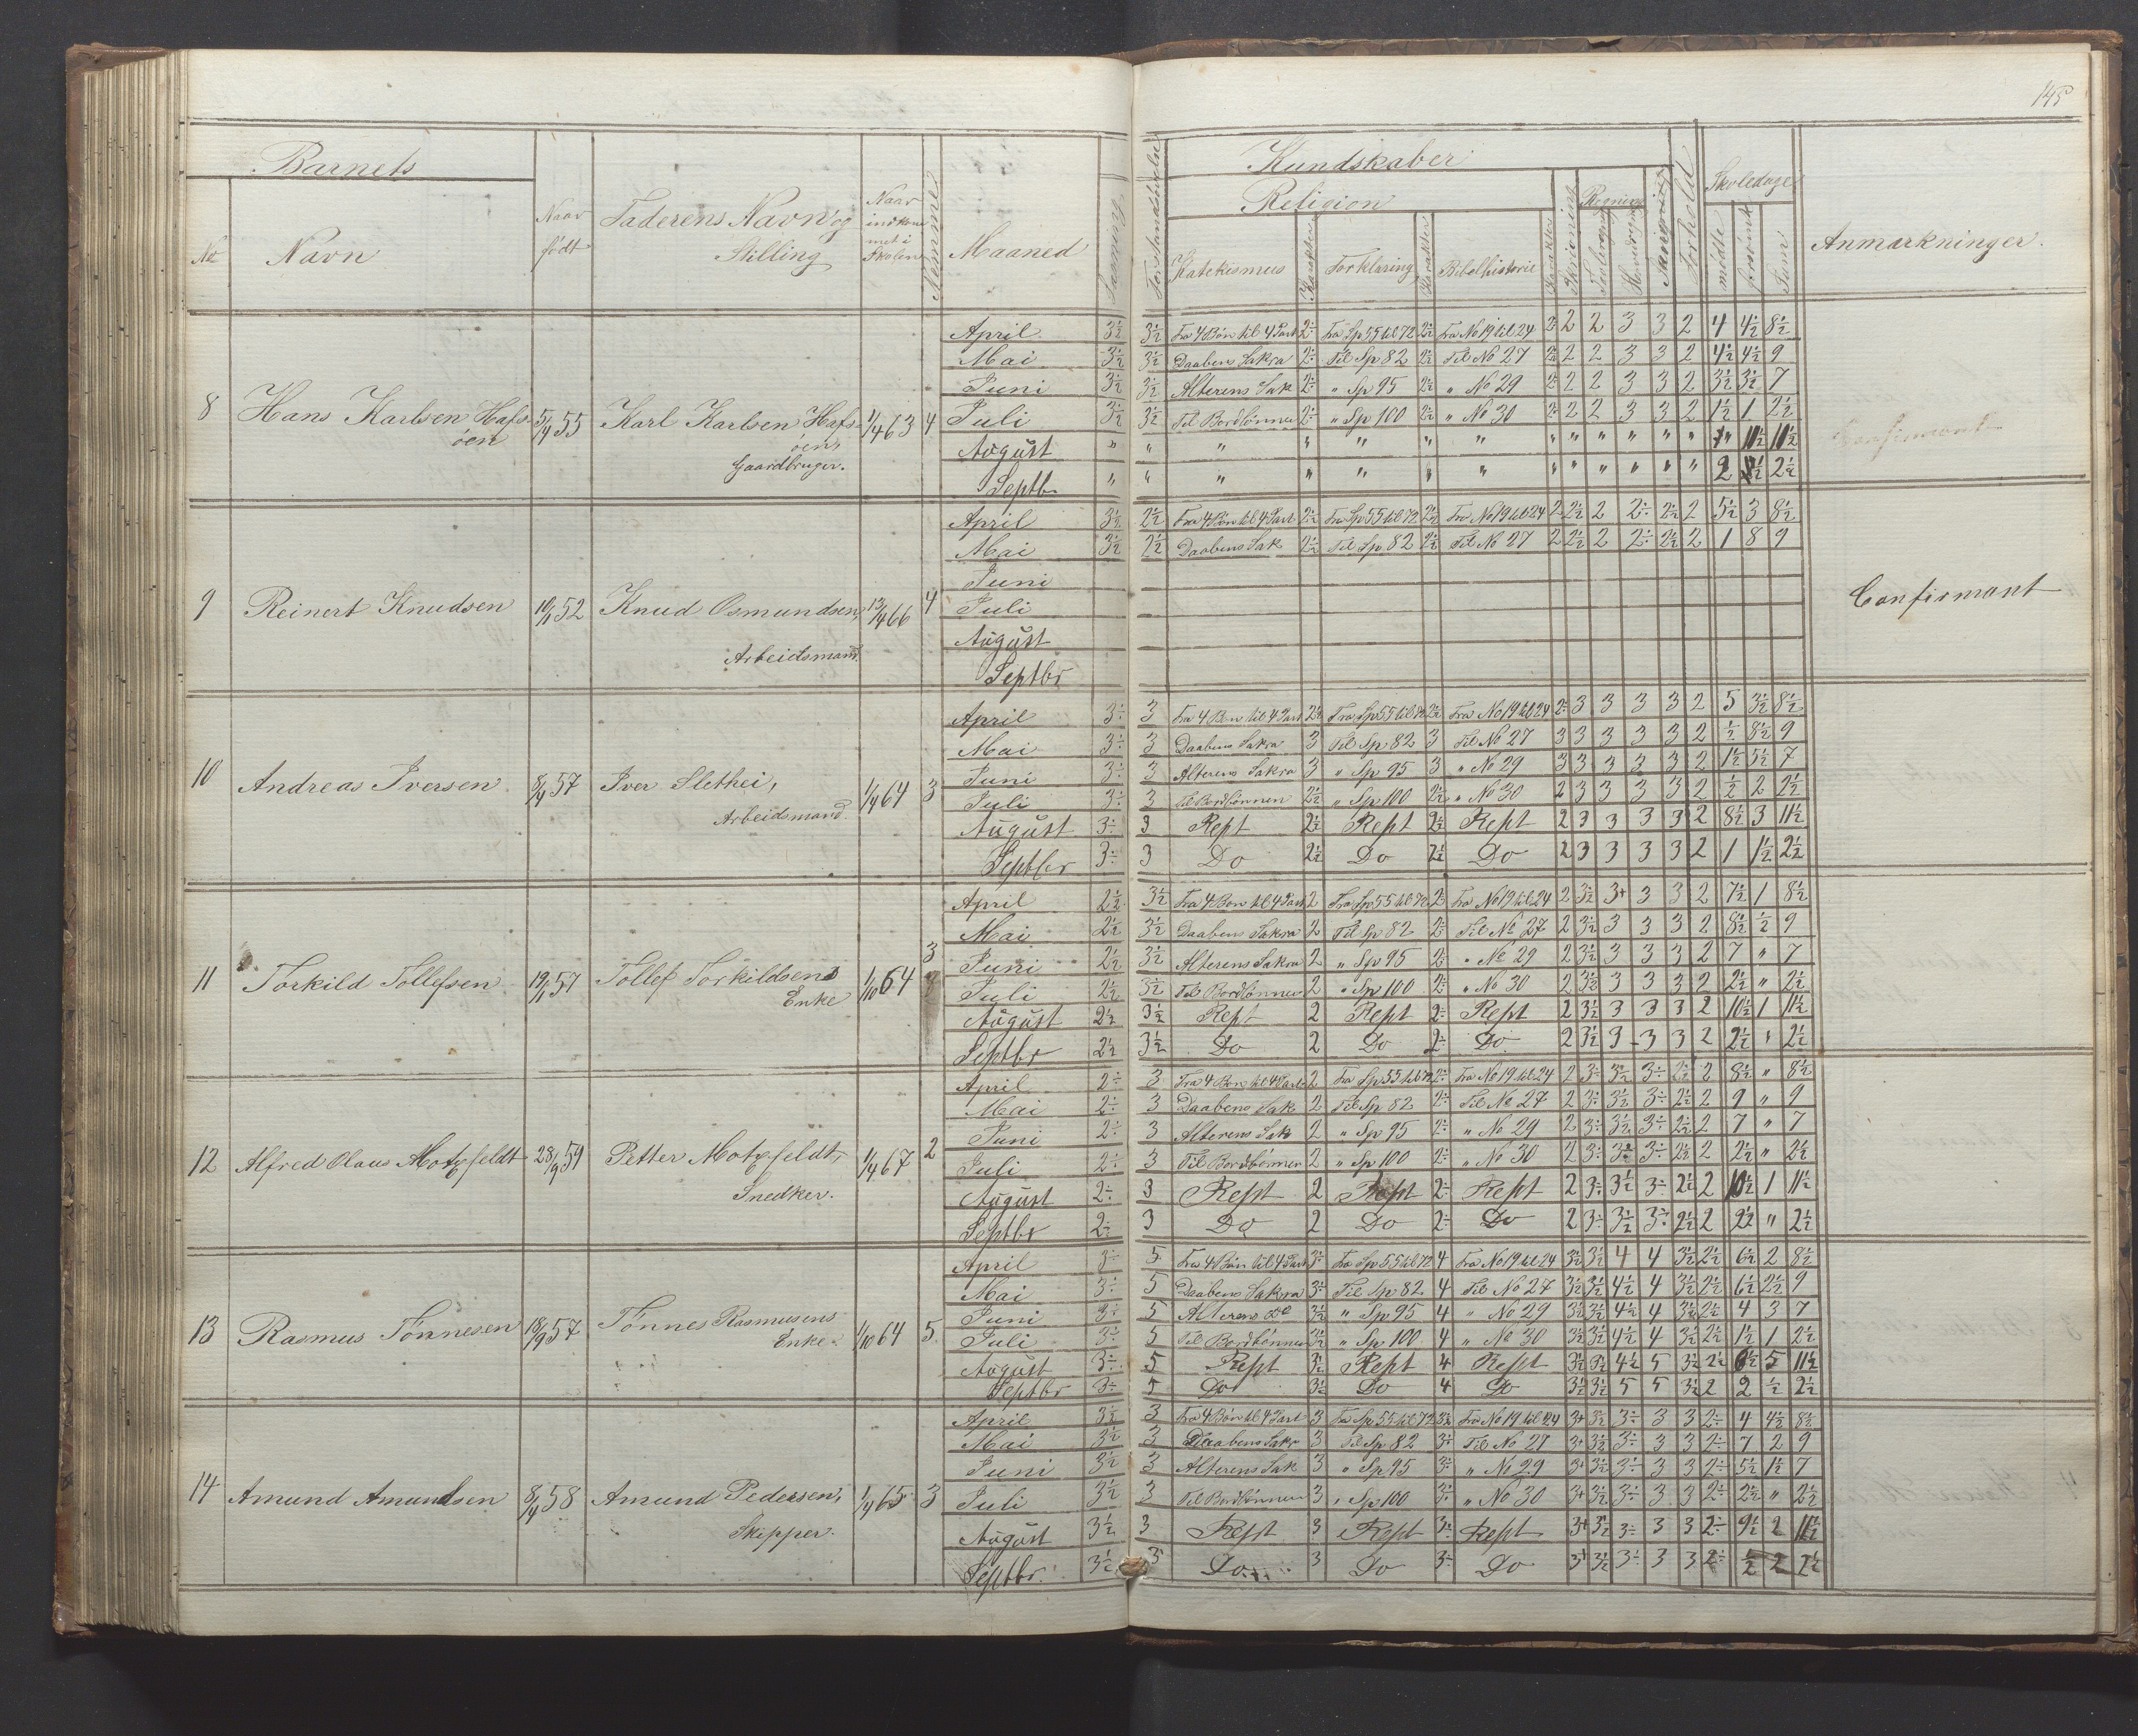 145
Barnets
Kundskaber
Religion
Regning
Skoledage
No
Navn
Naar født
Faderens Navn og Stilling
Naar indkommet i Skolen
Nemme
Maaned
Læsning
Katekismus
Karakter
Forklaring
Karakter
Bibelhistorie
Karakter
Skrivning
Forhold
mødte
forsømte
Sum
Anmærkninger.
8 Hans Karlsen Hafsøen 5/9 55 Karl Karlsen Hafsøen, Gaardbruger. 1/4 63 4
April 3½ 3½ Fra 4 Bøn til 4 Part 2÷ Fra Sp 55 til 72 2½ Fra No 19 til 24 2÷ 2 2 3 3 2 4 4½ 8½
Mai 3½ 3½ Daabens Sakra 2÷ Til Sp 82 2½ Til No 27 2÷ 2 2 3 3 2 4½ 4½ 9
Juni 3½ 3½ Alterens Sak 2÷ " Sp 95 2½ " No 29 2÷ 2 2 3 3 2 3½ 3½ 7
Juli 3½ 3½ Til Bordbønnen 2÷ " Sp 100 2½ " No 30 2÷ 2 2 3 3 2 1½ 1 2½
August " " " " " " " " " " " " " " 11½ 11½
Septb. " " " " " " " " " " " " " 2 ½ 2½
Confirmant
9 Reinert Knudsen 10/1 52 Knud Osmundsen, Arbeidsmand. 13/4 66 4
April 3½ 2½ Fra 4 Bøn til 4 Part 2½ Fra Sp 55 til 72 2½ Fra No 19 til 24 2 2½ 2 2÷ 2½ 2 5½ 3 8½
Mai 3½ 2½ Daabens Sak 2½ Til Sp 82 2½ Til No 27 2 2½ 2 2÷ 2½ 2 1 8 9
Juni
Juli
August
Septbr
Confirmant
10 Andreas Iversen 8/4 57 Iver Slethei, Arbeidsmand. 1/4 64 3
April 3÷ 3 Fra 4 Bøn til 4 Part 2½ Fra Sp 55 til 72 2½ Fra No 19 til 24 2÷ 3 3 3 3 2 5 3½ 8½
Mai 3÷ 3 Daabens Sakra 3 Til Sp 82 3 Til No 27 3 3 3 3 3 2 ½ 8½ 9
Juni 3÷ 3 Alterens Sakra 3 " Sp 95 3 " No 29 3 3 3 3 3 2 1½ 5½ 7
Juli 3÷ 3 Til Bordbønnen 2½ " Sp 100 2½ " No 30 2 3 3 3 3 2 ½ 2 2½
August 3÷ 3 Rept 2½ Rept 2½ Rept 2 3 3 3 3 2 8½ 3 11½
Septbr 3÷ 3 Do 2½ Do 2½ Do 2 3 3 3 3 2 1 1½ 2½
11 Torkild Tollefsen 19/1 57 Tollef Torkildsens Enke 1/10 64 3
April 2½ 3½ Fra 4 Bøn til 4 Part 2 Fra Sp 55 til 72 2÷ Fra No 19 til 24 2 3½ 3+ 3 3 2 7½ 1 8½
Mai 2½ 3½ Daabens Sakra 2 Til Sp 82 2÷ Til No 27 2 3½ 3 3 3 2 8½ ½ 9
Juni 2½ 3½ Alterens Sakra 2 " Sp 95 2÷ " No 29 2 3½ 3 3 3 2 7 " 7
Juli 2½ 3½ Til Bordbønnen 2 " Sp 100 2÷ " No 30 2 3½ 3 3 3 2 2½ " 2½
August 2½ 3½ Rept 2 Rept 2÷ Rept 2 3½ 3 3 3 2 10½ 1 11½
Septbr 2½ 3½ Do 2 Do 2÷ Do 2 3½ 3 3 3 2 2½ " 2½
12 Alfred Olaus Motzfeldt 28/9 59 Petter Motzfeldt, Snedker. 1/4 67 2
April 2÷ 3 Fra 4 Bøn til 4 Part 2 Fra Sp 55 til 72 2÷ Fra No 19 til 24 2 3÷ 3½ 3÷ 2½ 2 8½ " 8½
Mai 2÷ 3 Daabens Sak 2 Til Sp 82 2÷ Til No 27 2 3÷ 3½ 3÷ 2½ 2 9 " 9
Juni 2÷ 3 Alterens Sak 2 " Sp 95 2÷ " No 29 2 3÷ 3½ 3÷ 2½ 2 7 " 7
Juli 2÷ 3 Til Bordbønnen 2 " Sp 100 2÷ " No 30 2 3÷ 3½ 3÷ 2½ 2 2½ " 2½
August 2÷ 3 Rept 2 Rept 2÷ Rept 2 3÷ 3½ 3÷ 2½ 2 10½ 1 11½
Septbr 2÷ 3 Do 2 Do 2÷ Do 2 3÷ 3½ 3÷ 2½ 2 2½ " 2½
13 Rasmus Tønnesen 18/9 57 Tønnes Rasmusens Enke. 1/10 64 5.
April 3÷ 5 Fra 4 Bøn til 4 Part 3÷ Fra Sp 55 til 72 4 Fra No 19 til 24 3½ 3½ 4 4 3½ 2½ 6½ 2 8½
Mai 3÷ 5 Daabens Sakra 3÷ Til Sp 82 4 Til No 27 3½ 3½ 4½ 4 3½ 2½ 6½ 2½ 9
Juni 3÷ 5 Alterens Do 3½ " Sp 95 4 " No 29 3½ 3½ 4½ 4 3½ 2½ 4 3 7
Juli 3÷ 5 Til Bordbønnen 3½ " Sp 100 4 " No 30 3½ 3½ 4½ 4 3½ 2½ 1½ 1 2½
August 3÷ 5 Rept 3½ Rept 4 Rept 3½ 3½ 4½ 5 3½ 2½ 6½ 5 11½
Septbr 3÷ 5 Do 3½ Do 4 Do 3½ 3½ 5 5 3½ 2 2 ½ 2½
14 Amund Amundsen 8/4 58 Amund Pedersen, Skipper. 1/4 65 3
April 3½ 3 Fra 4 Bøn til 4 Part 3 Fra Sp 55 til 72 3½ Fra No 19 til 24 3+ 3½ 3÷ 3 3 2÷ 4 4½ 8½
Mai 3½ 3 Daabens Sakr 3 Til Sp 82 3÷ Til No 27 3+ 3½ 3÷ 3 3 2÷ 7 2 9
Juni 3½ 3 Alterens Sak 3 " Sp 95 3÷ " No 29 3+ 3½ 3÷ 3 3 2÷ 5½ 1½ 7
Juli 3½ 3 Til Bordbønnen 3 " Sp 100 3÷ " No 30 3+ 3½ 3÷ 3 3 2÷ 2½ " 2½
August 3½ 3 Rept 3 Rept 3÷ Rept 3+ 3½ 3÷ 3 3 2÷ 9½ 2 11½
Septbr. 3½ 3 Do 3 Do 3÷ Do 3+ 3½ 3÷ 3 3 2÷ ½ 2 2½